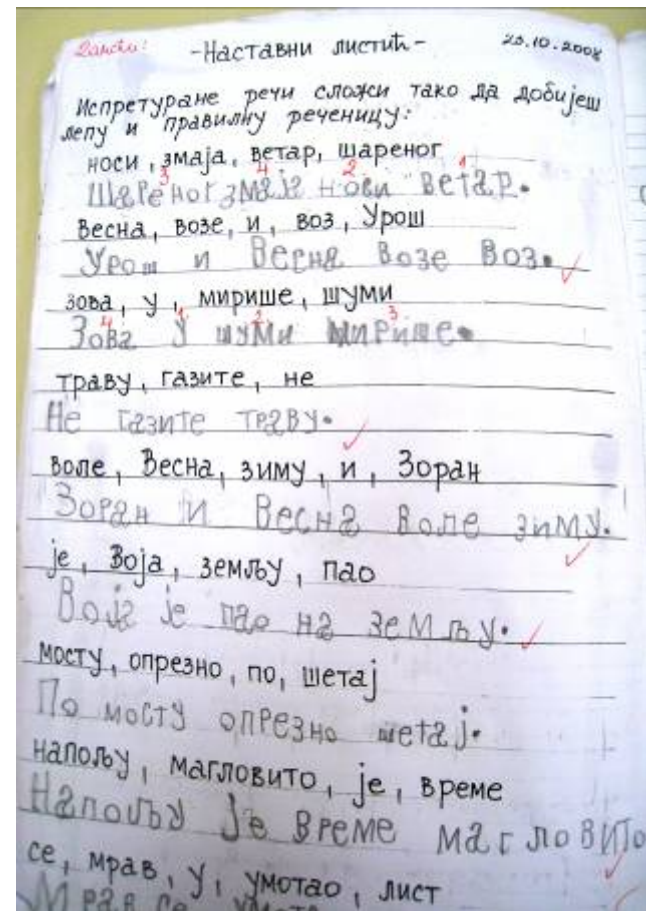 -Наставни листић- 23.10.2008
Испретуране речи сложи тако да добијеш
лепу и правилну реченицу:
носи, змаја, ветар, шареног
3 4 2 1
Шареног змаја носи ветар.
Весна, возе, и, воз, Урош
Урош и Весна возе воз.
зова, у, мирише, шуми
4 1 2 3
Зова у шуми мирише.
траву, газите, не
Не газите траву.
воле, Весна, зиму, и, Зоран
Зоран и Весна воле зиму.
је, Воја, земљу, пао
Воја је пао на земљу.
мосту, опрезно, по, шетај
По мосту опрезно шетај.
напољу, магловито, је, време
Напољу је време магловито
се, мрав, у, умотао, лист
Мрав се